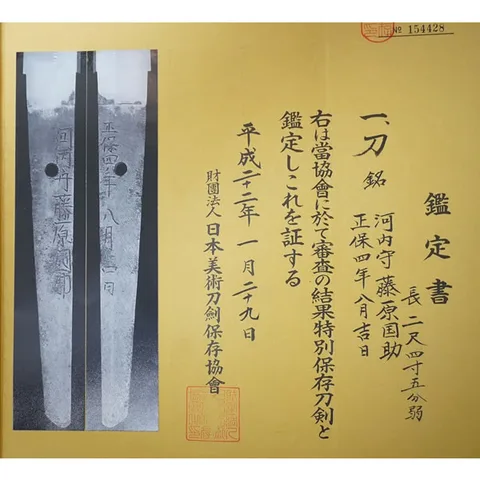 № 154428
鑑定書
長 二尺四寸五分弱
一、刀 銘 河内守藤原国助
正保四年八月吉日
右は當協會に於て審査の結果特別保存刀剣と
鑑定しこれを証する
平成二十二年 一月 二十九日
財團法人 日本美術刀劍保存協會
正保四年八月吉日
河内守藤原国助